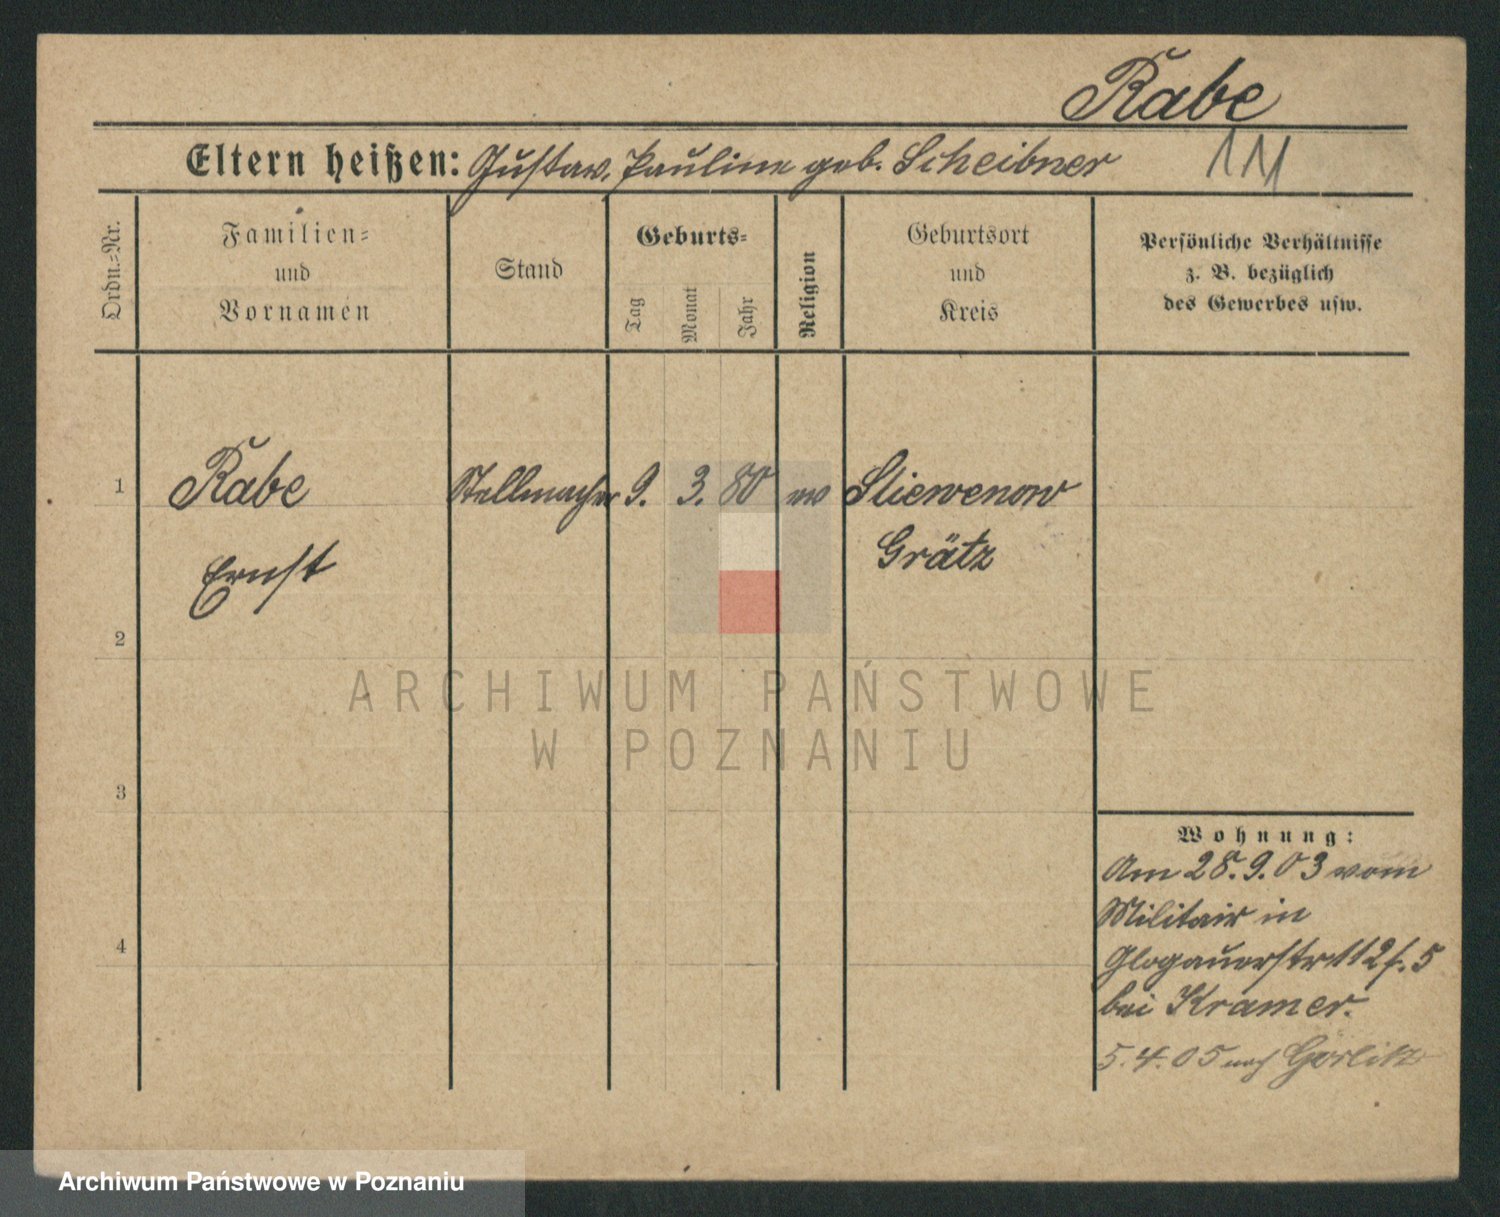 Rabe
Eltern heißen: Gustav, Pauline geb. Scheibner
111
Ordn.=Nr.
Familien=
und
Vornamen
Stand
Geburts=
Tag
Monat
Jahr
Religion
Geburtsort
und
Kreis
Persönliche Verhältnisse
z. B. bezüglich
des Gewerbes usw.
1 Rabe Stellmacher 9. 3. 80 ev Sliewenow
Ernst Grätz
2
ARCHIWUM PAŃSTWOWE
W POZNANIU
3
Wohnung:
Am 28.9.03 vom
Militair in
4
Glogauerstr 112 f. 5
bei Kramer.
5.4.05 nach Görlitz
Archiwum Państwowe w Poznaniu